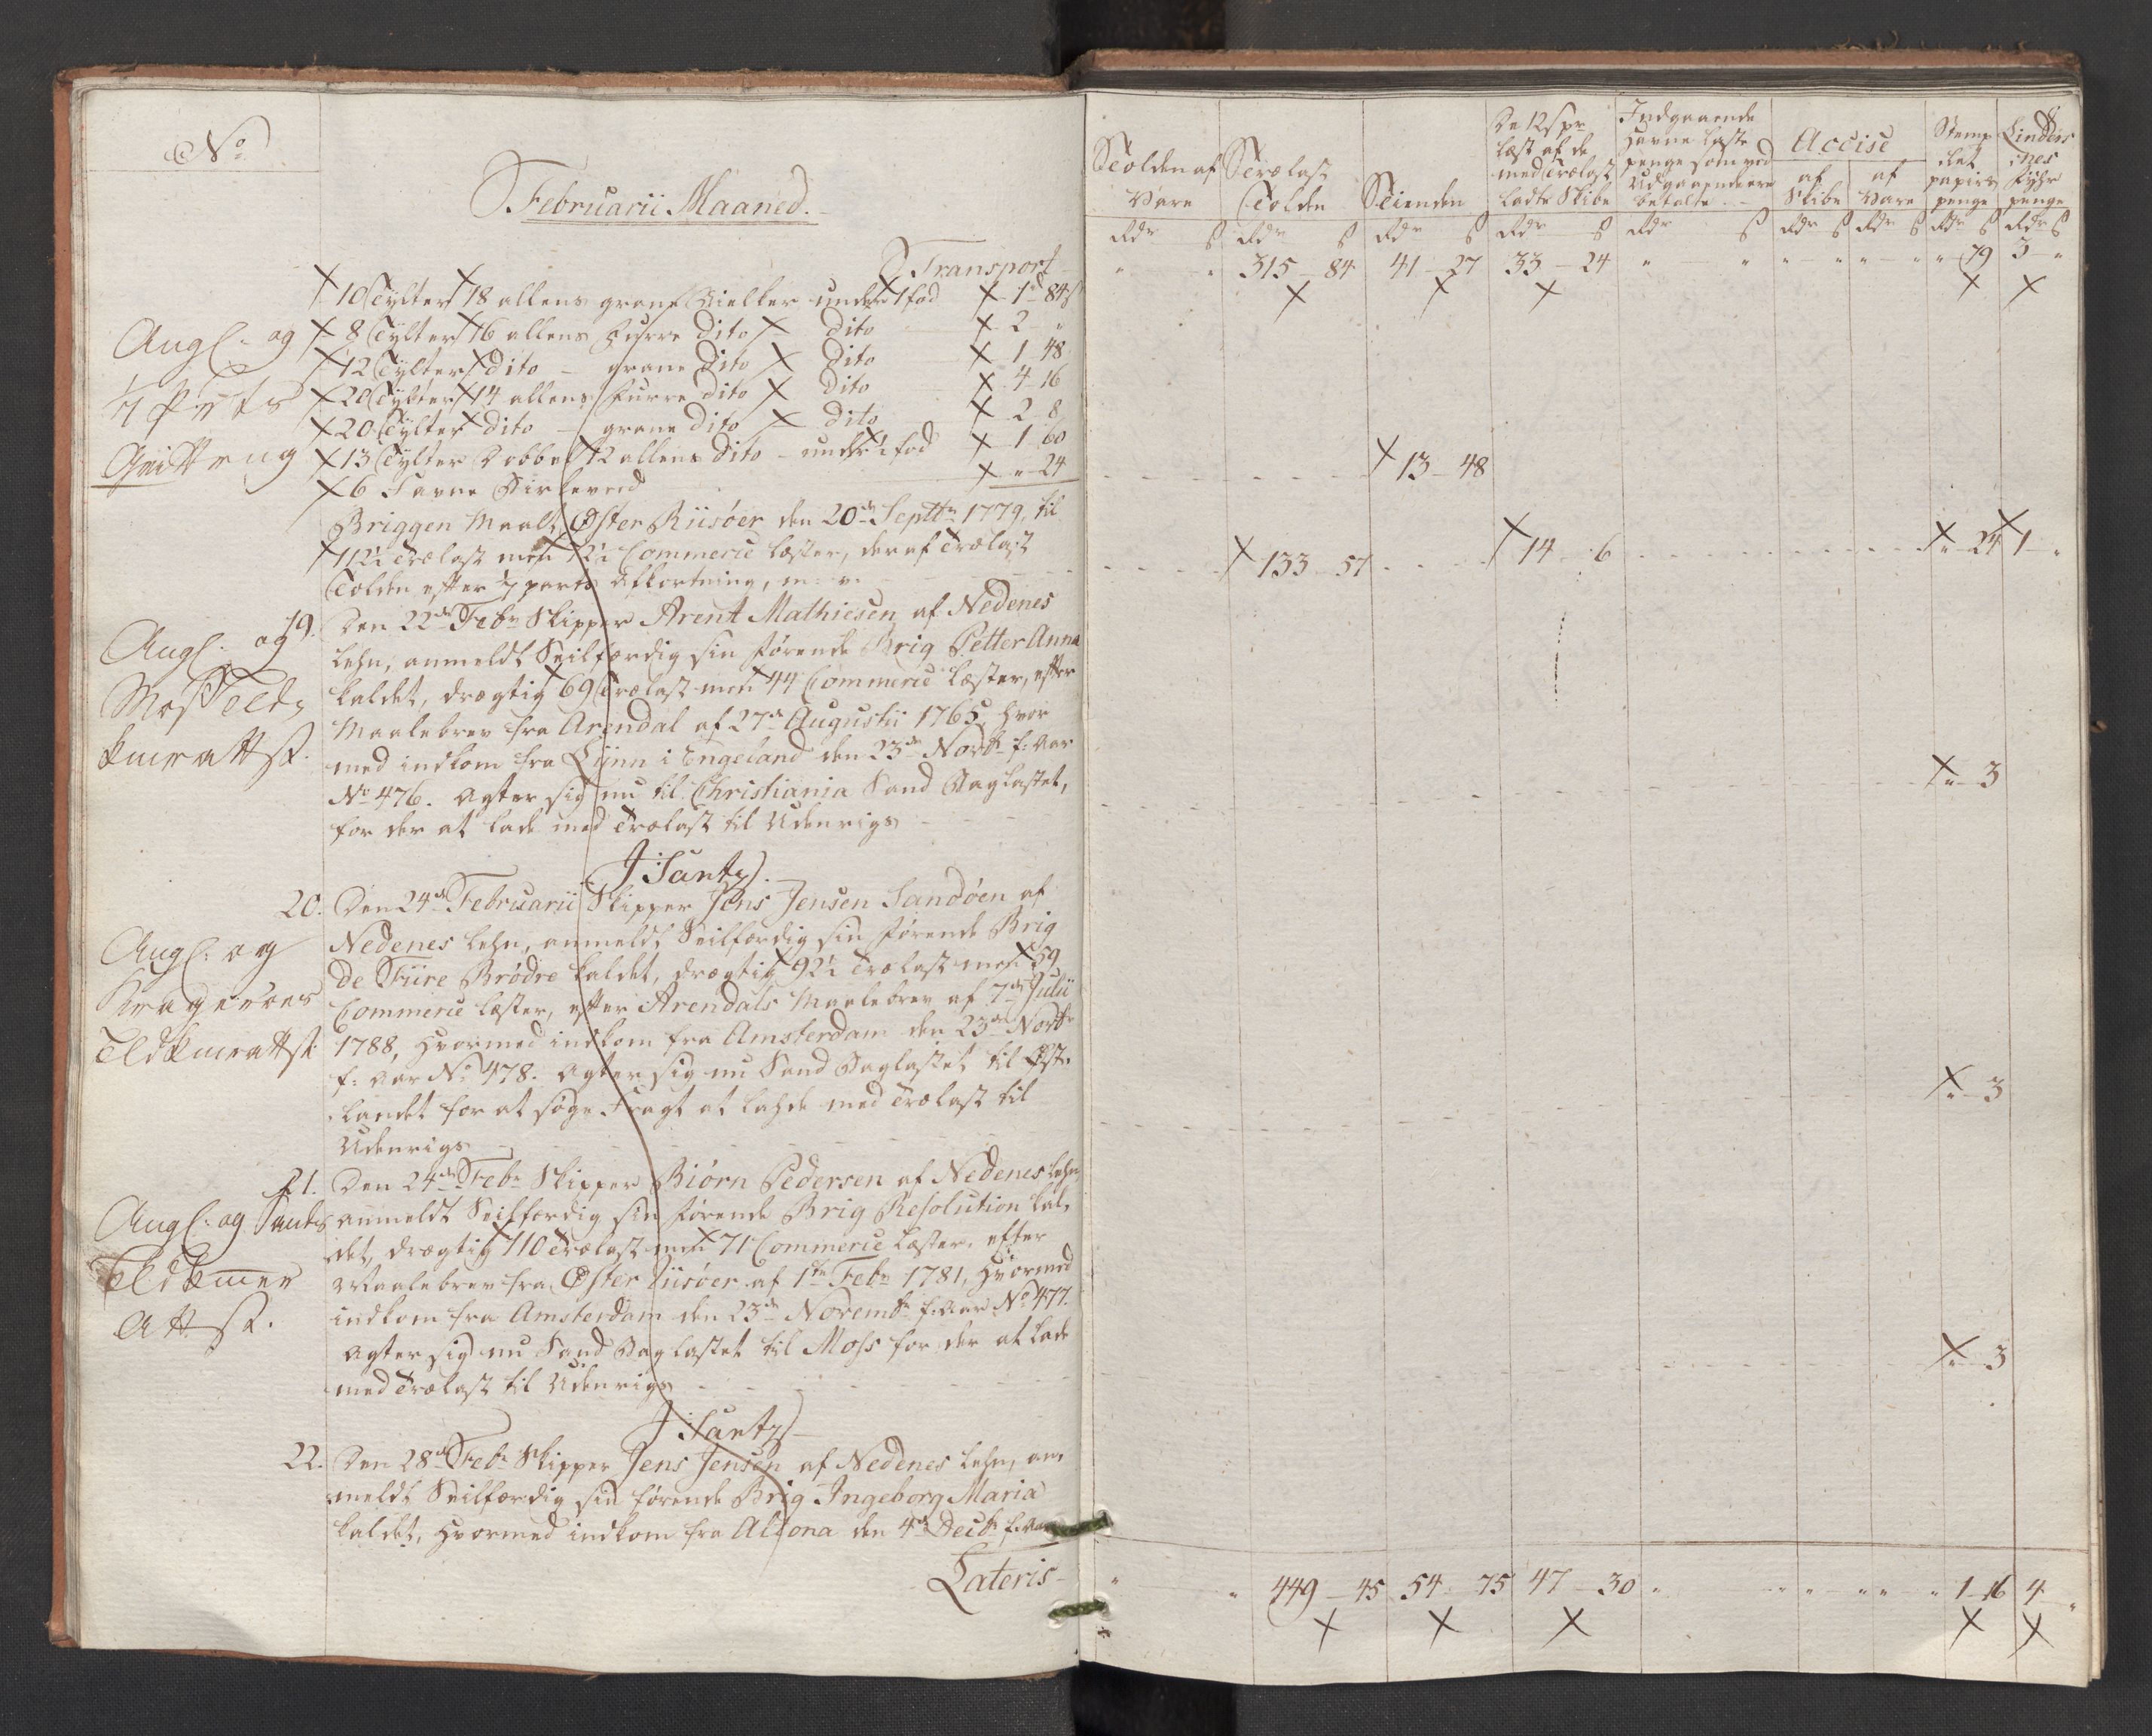 No
Februarii Maaned.
Transport
10 Tylter 18 allens grane Bielker under 1 fod 1 84 s
8 Tylter 16 allens furre dito dito 2 "
12 Tylter dito - grane dito dito 1 48
20 Tylter 14 allens furre dito dito 4 16
20 Tylter dito - grane dito dito 2 8
13 Tylter Dobbel 12 allens dito - under 1 fod 1 60
6 Favne Birkeved " 24
Angl: og
1/7 parts
Qvitteng
Briggen Maalt Øster Riisøer den 20de Septbr 1779, til
112½ Trælast men 72½ Commerce læster, deraf Trælast
Tolden efter 1/7 parts Afkortning, m: v:
19. Den 22de Febr Skipper Arent Mathiesen af Nedenes
Lehn, anmeldt Seilfærdig sin førende Brig Petter Anna
kaldet, drægtig 69 Trælast men 44 Commerce Læster, efter
Maalebrev fra Arendal af 27de Augustii 1765, hvor
med indkom fra Lynn i Engeland den 23de Novbr f: Aar
No 476. agter sig nu til Christiania Sand Baglastet,
for der at lade med Trælast til Udenrigs
Angl: og
Moss Toldz
kmeratt st.
J Santz
20. Den 24de Februarii Skipper Jens Jensen Sandøen af
Nedenes Lehn, anmeldt Seilfærdig sin førende Brig
De Fiire Brødre kaldet, drægtig 92½ Trælast men 59
Commerce Læster, efter Arendals Maalebrev af 7de Julii
1788, hvormed indkom fra Amsterdam den 23de Novbr
f: Aar No 478. agter sig nu Sand Baglastet til Øst-
landet for at søge Fragt at lahde med Trælast til
Udenrigs
Angl: og
Kragerøes
Tldkmerattst
21. Den 24de Febr Skipper Biørn Pedersen af Nedenes Lehn
anmeldt Seilfærdig sin førende Brig Resolution kal-
det, drægtig 110 Trælast men 71 Commerce Læster, efter
Maalebrev fra Øster Riisøer af 1ste Febr 1781, hvormed
indkom fra Amsterdam den 23de Novembr f: Aar No 477.
agter sig nu Sand Baglastet til Moss for der at lade
med Trælast til Udenrigs
Angl: og Sands
Tldkmer
Att st.
J Santz
22. Den 28de Febr Skipper Jens Jensen af Nedenes Lehn, an-
meldt Seilfærdig sin førende Brig Ingeborg Maria
kaldet, hvormed indkom fra Altona den 4de Decbr f: Aar
Lateris
Tolden af Vare
Trælast Tolden
Tienden
De 12 s pr læst af de med Trælast ladte Skibe
Indgaaende Havne laste penge som ved Udgaaendere betalte
Accise
af Skibe
af Vare
Stemplet papirs penge
Lindesnæs Fyhr penge
Rdr s Rdr s Rdr s Rdr s Rdr s Rdr s Rdr s Rdr s Rdr s
" " 315 - 84 41 - 27 33 - 24 " " " - " " - " " 79 3 - "
13 - 48
133 - 57 14 - 6 " 24 1 - "
" - 3
" - 3
" - 3
" " 449 - 45 54 - 75 47 - 30 " " " " " " 1 - 16 4 "